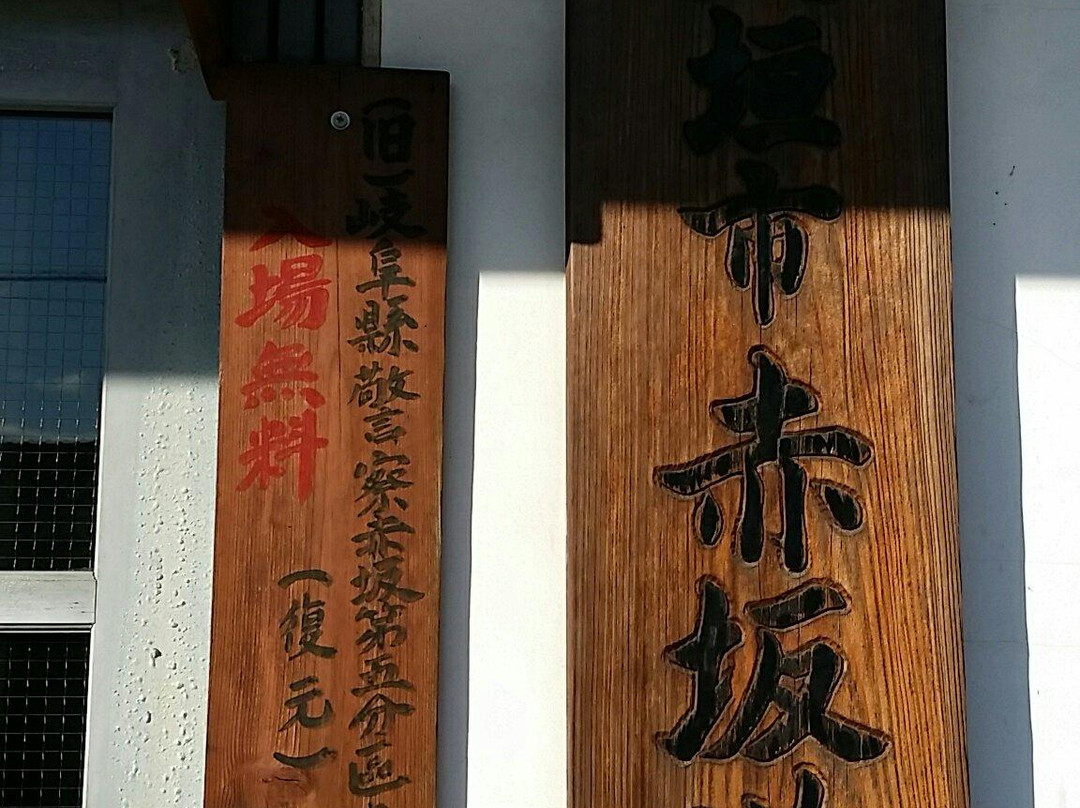 垣市赤坂
(旧)岐阜縣警察赤坂第五分區
(復元)
入場無料